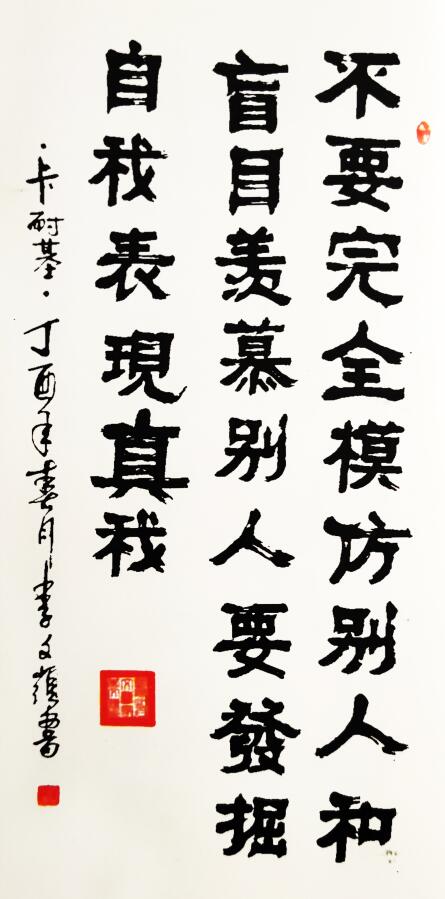 不要完全模仿别人和
盲目羡慕别人要發掘
自我表現真我
·卡耐基·丁酉年春月李文
書